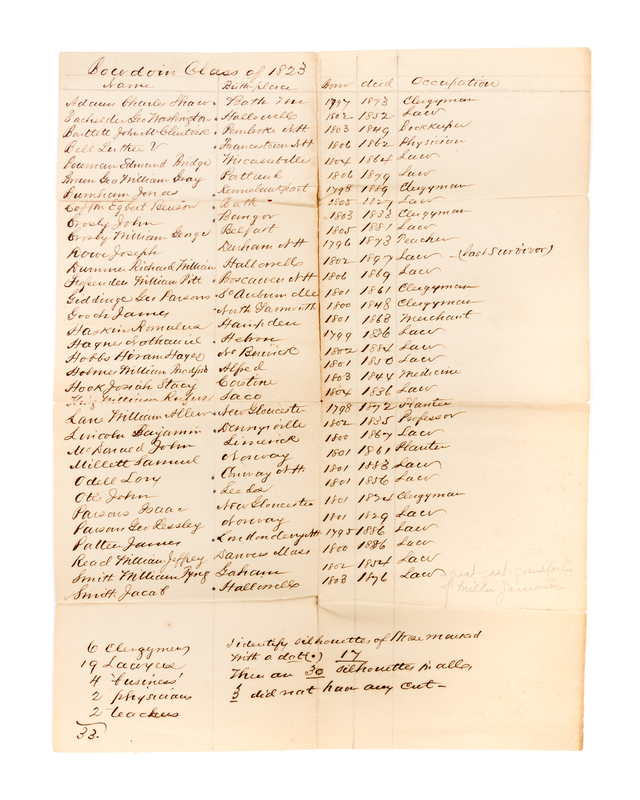 Bowdoin Class of 1823
Name Birthplace born died Occupation
Adams Charles Shaw • Bath Me 1797 1873 Clergyman
Bachelder Geo Washington • Hallowell 1802 1852 Law
Bartlett John McClintock • Pembroke NH 1803 1849 Bookkeeper
Bell Luther V Francestown NH 1806 1862 Physician
Bowman Edmund Bridge • 1804 1864 Law
Brown Geo William Gray Portland 1806 1879 Law
Burnham Jonas • Kennebunkport 1798 1889 Clergyman
Coffin Egbert Benson • Bath 1805 1827 Law
Crosby John • Bangor 1803 1833 Clergyman
Crosby William George • Belfast 1805 1881 Law
Joseph Durham NH 1796 1873 Teacher
Dummer Richard William • Hallowell 1802 1897 Law - (last survivor)
Fessenden William Pitt • Boscawen NH 1806 1869 Law
Giddinge Geo Parsons • 1801 1861 Clergyman
Gooch James • North Yarmouth 1800 1848 Clergyman
Haskin Romulus • Hampden 1801 1868 Merchant
Haynes Nathaniel • Hebron 1799 1836 Law
Hobbs Hiram Hayes • No Berwick 1802 1884 Law
Holmes William Bradford • Alfred 1801 1850 Law
Hook Josiah Stacy • Castine 1803 1844 Medicine
King William Rufus • Saco 1804 1836 Law
Lane William Allen • New Gloucester 1798 1872 Planter
Lincoln Benjamin • Dennysville 1802 1835 Professor
McDonald John • Limerick 1800 1867 Law
Millett Samuel • Norway 1801 1861 Planter
Odell Lory • Conway NH 1801 1883 Law
Otis John • Leeds 1801 1856 Law
Parsons Isaac New Gloucester 1801 1825 Clergyman
Parsons Geo Lessley • Norway 1801 1829 Law
Patten James • Londonderry NH 1795 1886 Law
Read William Jeffrey • Danvers Mass 1800 1886 Law
Smith William Tyng • Goham 1802 1854 Law
Smith Jacob • Hallowell 1803 1876 Law
6 Clergymen
19 Lawyers
4 'business'
2 physicians
2 teachers
33.
I identify silhouettes of those marked
with a dot(•) 17
There are 30 silhouettes in all,
3 did not have any cut—